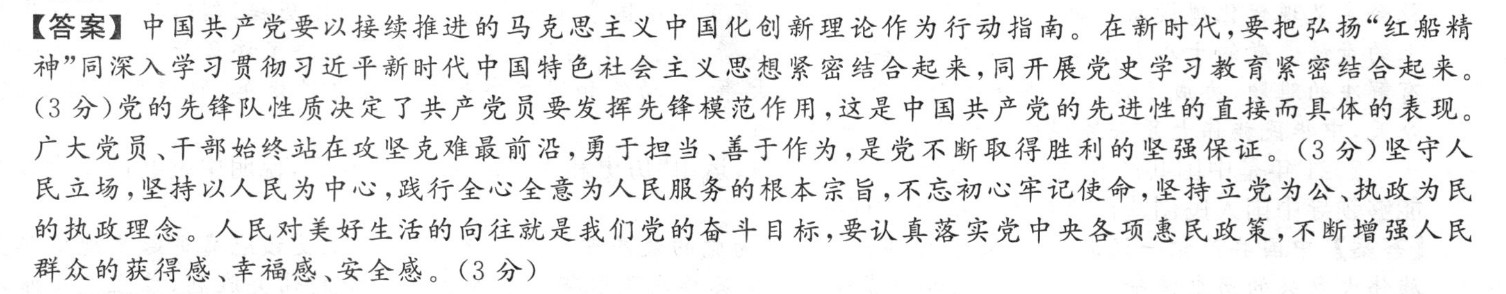 【答案】中国共产党要以接续推进的马克思主义中国化创新理论作为行动指南。在新时代,要把弘扬“红船精
神”同深入学习贯彻习近平新时代中国特色社会主义思想紧密结合起来,同开展党史学习教育紧密结合起来。
(3分)党的先锋队性质决定了共产党员要发挥先锋模范作用,这是中国共产党的先进性的直接而具体的表现。
广大党员、干部始终站在攻坚克难最前沿,勇于担当、善于作为,是党不断取得胜利的坚强保证。(3分)坚守人
民立场,坚持以人民为中心,践行全心全意为人民服务的根本宗旨,不忘初心牢记使命,坚持立党为公、执政为民
的执政理念。人民对美好生活的向往就是我们党的奋斗目标,要认真落实党中央各项惠民政策,不断增强人民
群众的获得感、幸福感、安全感。(3分)